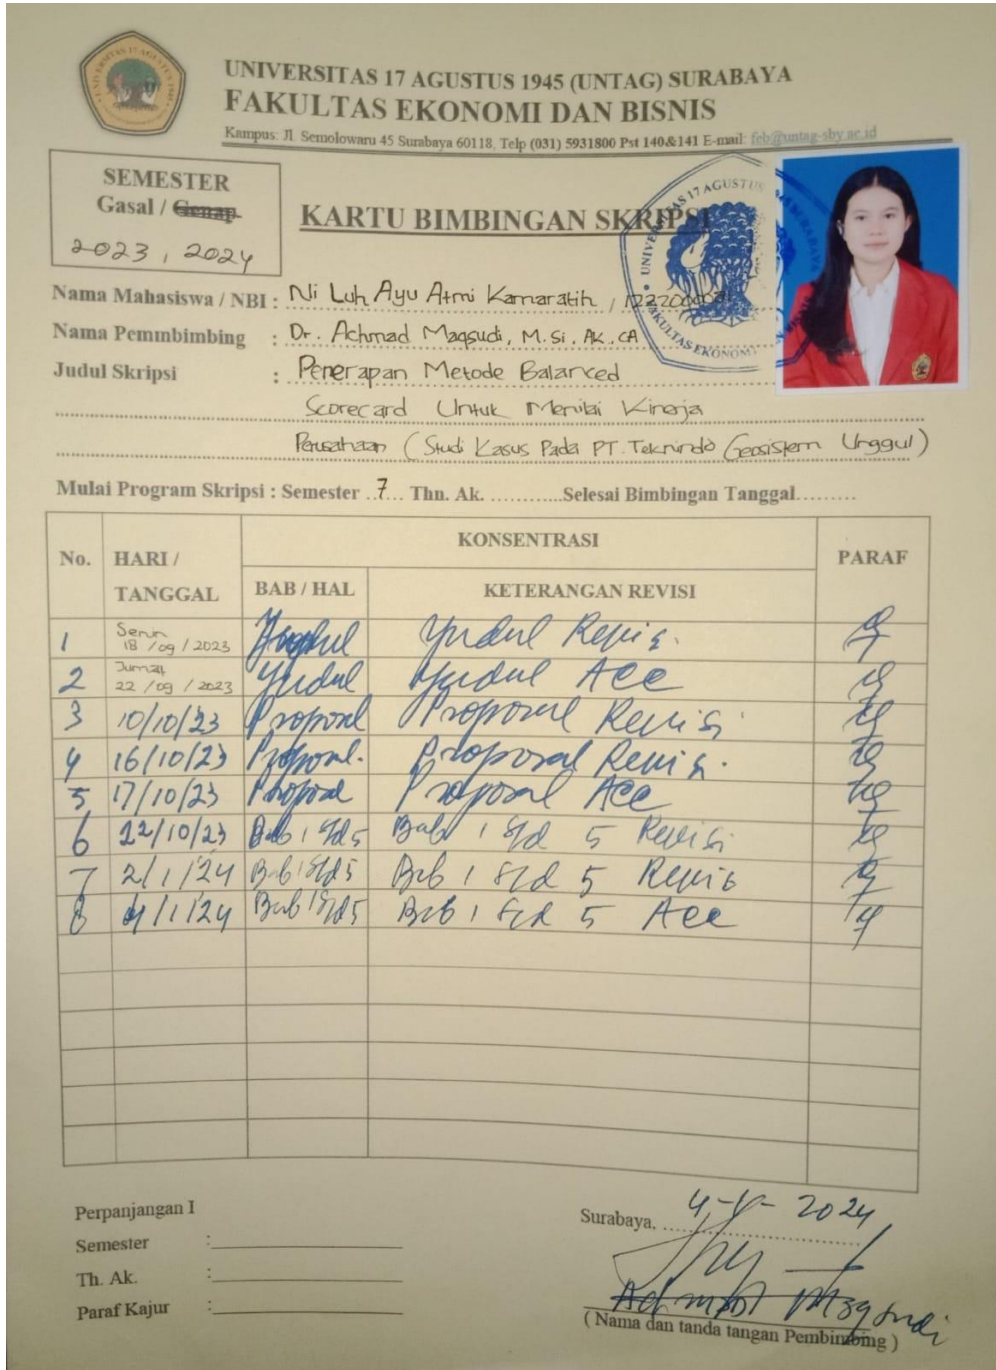 UNIVERSITAS 17 AGUSTUS 1945 (UNTAG) SURABAYA
FAKULTAS EKONOMI DAN BISNIS
Kampus: Jl. Semolowaru 45 Surabaya 60118, Telp (031) 5931800 Pst 140&141 E-mail: feb@untag-sby.ac.id
SEMESTER
Gasal / Genap
2023, 2024
KARTU BIMBINGAN SKRIPSI
UNIVERSITAS 17 AGUSTUS
FAKULTAS EKONOMI
Nama Mahasiswa / NBI : Ni Luh Ayu Atmi Kamaratih /
Nama Pemmbimbing : Dr. Achmad Maqsudi, M.Si, Ak, CA
Judul Skripsi : Penerapan Metode Balanced
Scorecard Untuk Menilai Kinerja
Perusahaan (Studi Kasus Pada PT. Teknindo Geosistem Unggul)
Mulai Program Skripsi : Semester ..7... Thn. Ak. ............Selesai Bimbingan Tanggal.........
No. HARI / TANGGAL KONSENTRASI PARAF
BAB / HAL KETERANGAN REVISI
1 Senin 18/09/2023 Yudul Revisi.
2 Jumat 22/09/2023 Yudul Yudul Acc
3 10/10/23 Proposal Proposal Revisi
4 16/10/23 Proposal. Proposal Revisi.
5 17/10/23 Proposal Proposal Acc
6 22/10/23 Bab 1 S/d 5 Bab 1 S/d 5 Revisi
7 2/1/24 Bab 1 S/d 5 Bab 1 S/d 5 Revisi
8 4/1/24 Bab 1 S/d 5 Bab 1 S/d 5 Acc
Perpanjangan I
Semester :
Th. Ak. :
Paraf Kajur :
Surabaya, 4-1-2024
Achmad Maqsudi
( Nama dan tanda tangan Pembimbing )